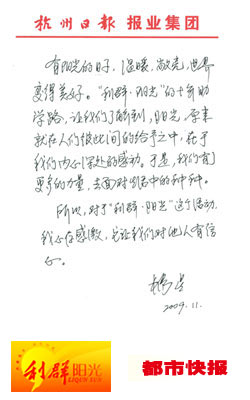 杭州日报 报业集团
有阳光的日子,温暖,敞亮,世界
变得美好。“利群·阳光”的十年助
学路,让我们了解到,阳光,原来
就在人们彼此间的给予之中,在于
我们内心深处的感动。于是,我们有
更多的力量,去面对生活中的种种。
所以,对于“利群·阳光”这个活动,
我心存感激,它让我们对他人有信
心。
2009.11.
利群 阳光
都市快报